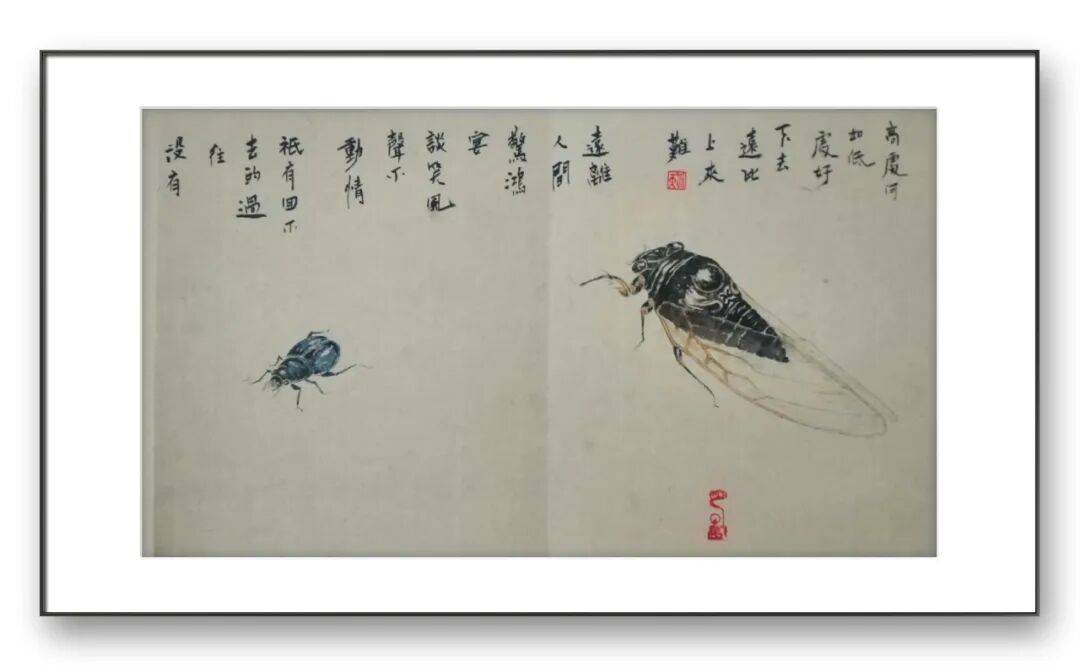 高處何
如低
處好
下去
遠比
上來
難
遠離
人間
驚鴻
宴
談笑風
聲不
動情
祗有回不
去的過
往
没有